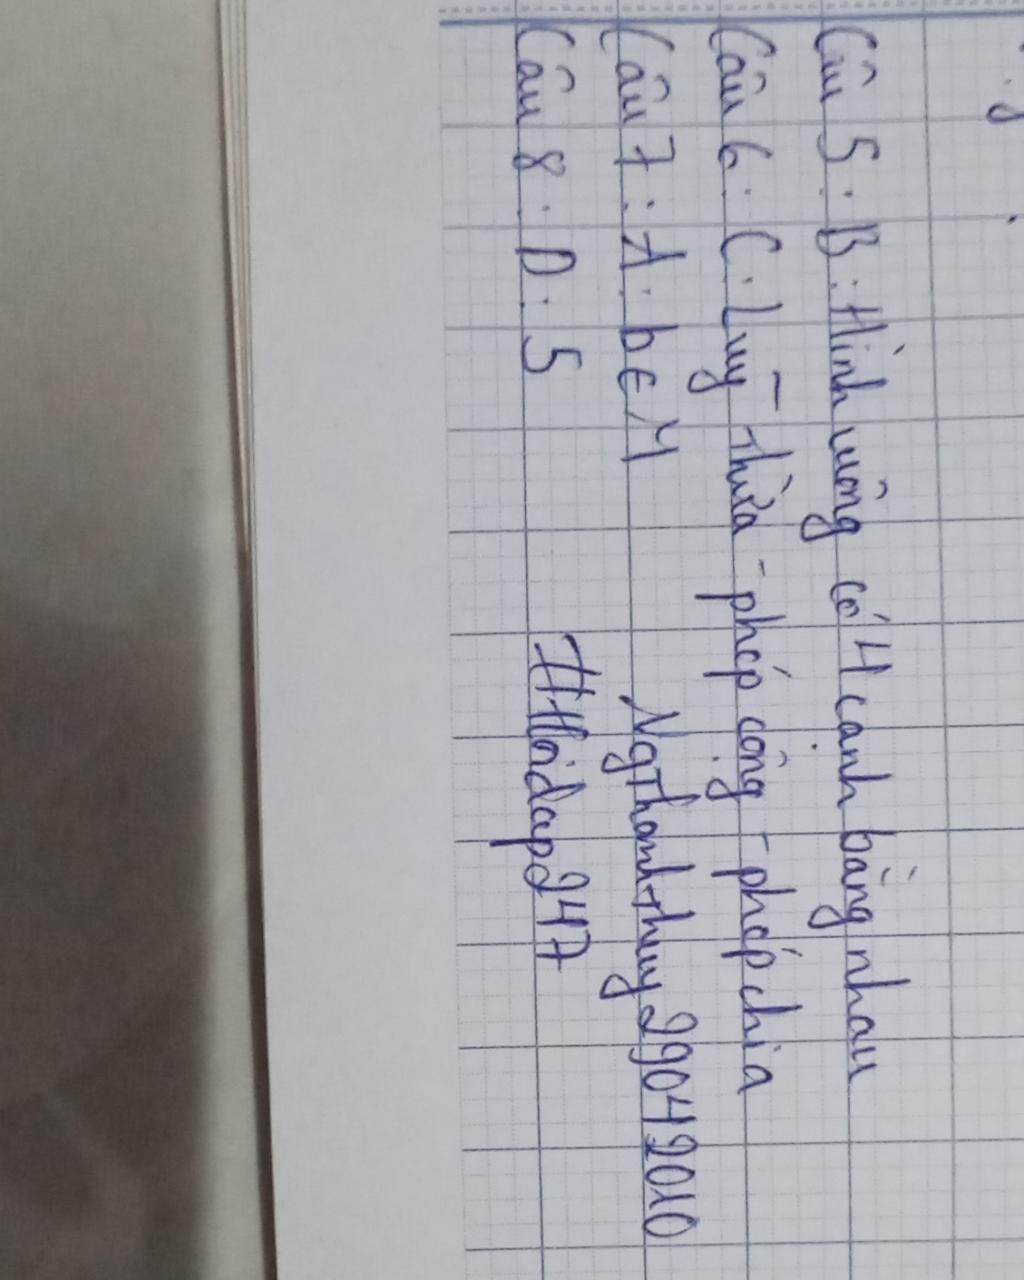 Câu 5 : B : Hình vuông có 4 cạnh bằng nhau
Câu 6 : C . Luỹ thừa - phép cộng - phép chia
Câu 7 : A . b ∈ M
Câu 8 . D : 5
Ngthanhthuy29042010
#Hoidap247